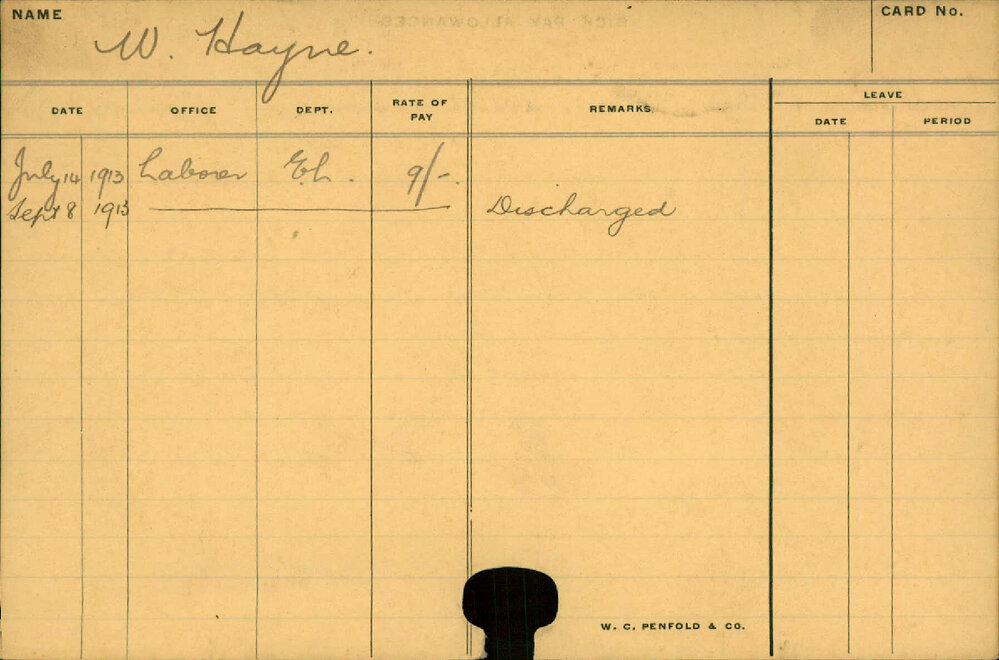 NAME W. Hayne. CARD No.
LEAVE
DATE OFFICE DEPT. RATE OF PAY REMARKS DATE PERIOD
July 14 1913 Laborer E.L. 9/-.
Sept 8 1913 Discharged
W. C. PENFOLD & CO.